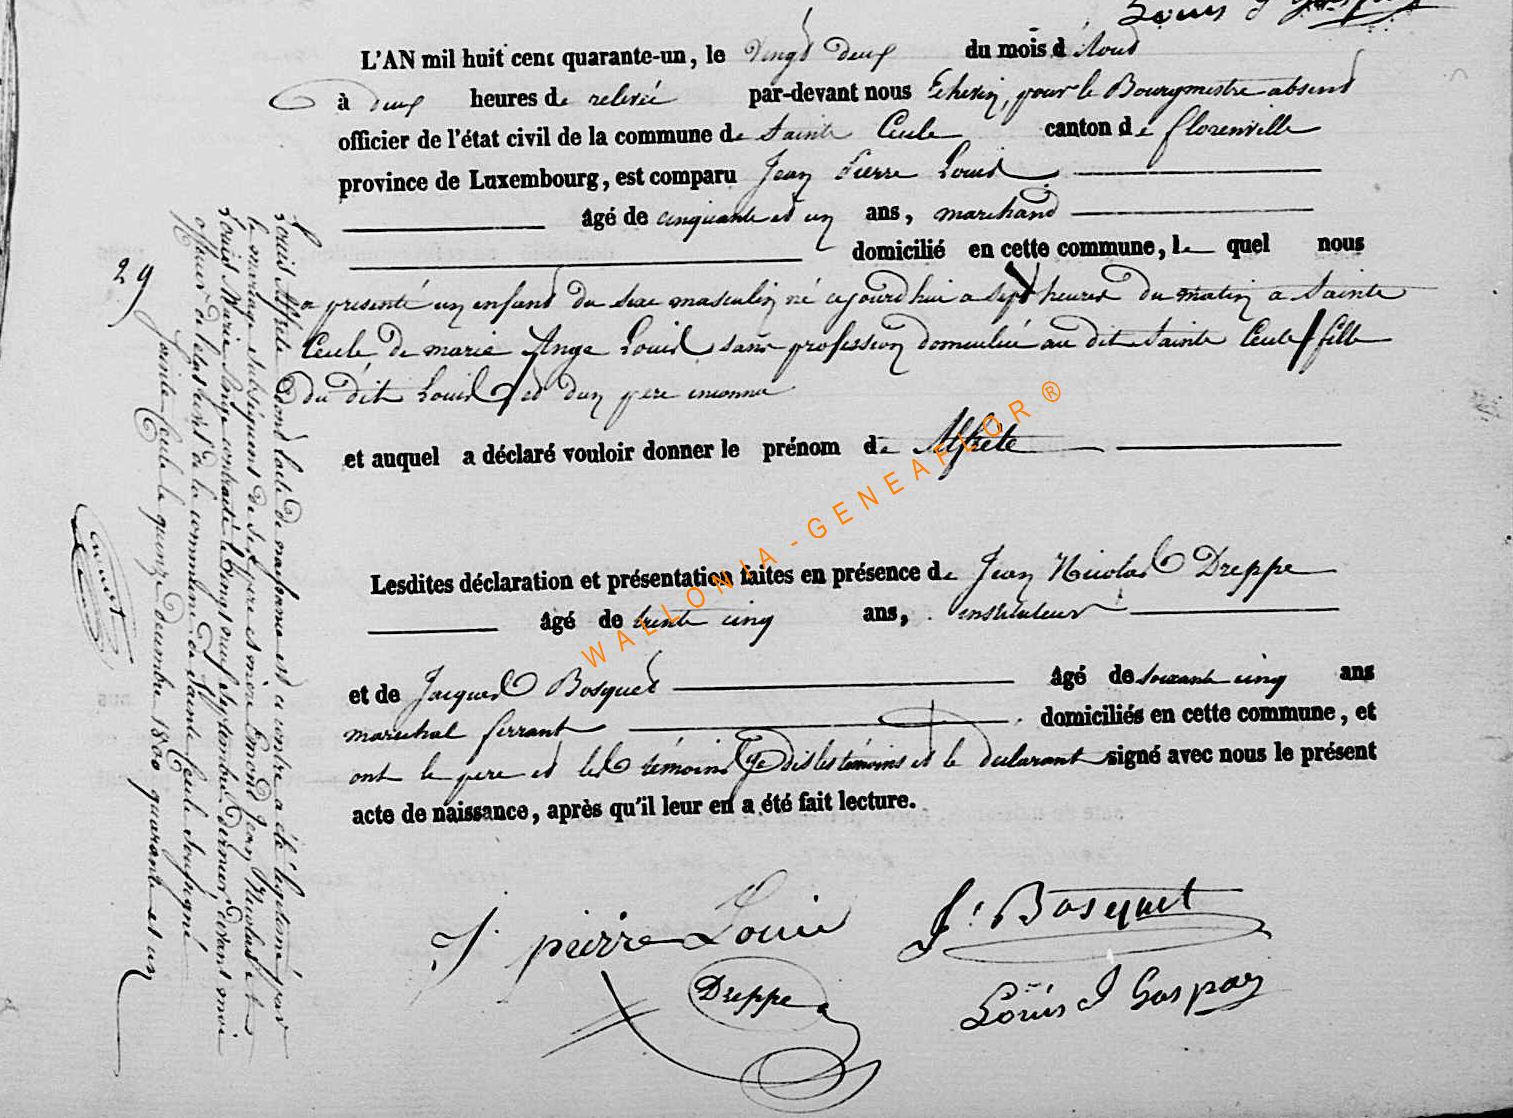 Louis J Gaspar
L'AN mil huit cent quarante-un, le vingt deux du mois d'Aout
à deux heures de relevée par-devant nous Echevin, pour le Bourgmestre absent
officier de l'état civil de la commune de Sainte Cecile canton de florenville
province de Luxembourg, est comparu Jean Pierre Louis
âgé de cinquante et un ans, marchand
domicilié en cette commune, le quel nous
29
a presenté un enfant du sexe masculin né cejourdhui a sept heures du matin a Sainte
Cecile de marie Ange Louis sans profession domiciliée au dit Sainte Cecile fille
du dit Louis et d'un pere inconnu
et auquel a déclaré vouloir donner le prénom de Alfrete
Lesdites déclaration et présentation faites en présence de Jean Nicolas Dreppe
âgé de trente cinq ans, instituteur
et de Jacques Bosquet âgé de soixante cinq ans
marechal ferrant domiciliés en cette commune, et
ont le pere et les témoins je dis les témoins et le declarant signé avec nous le présent
acte de naissance, après qu'il leur en a été fait lecture.
J. pierre Louis
J. Bosquet
Dreppe
Louis J Gaspar
Louis Alfrete dont l'acte de naissance est ci contre a été légitimé par
le mariage subséquent de ses pere et mère Emond Jean Nicolas et
Louis Marie Ange contracté le vingt neuf septembre dernier devant moi
officier de l'état civil de la commune de Sainte Cecile soussigné
Sainte Cecile le quinze decembre 1800 quarante et un
WALLONIA - GENEAFLOR ®